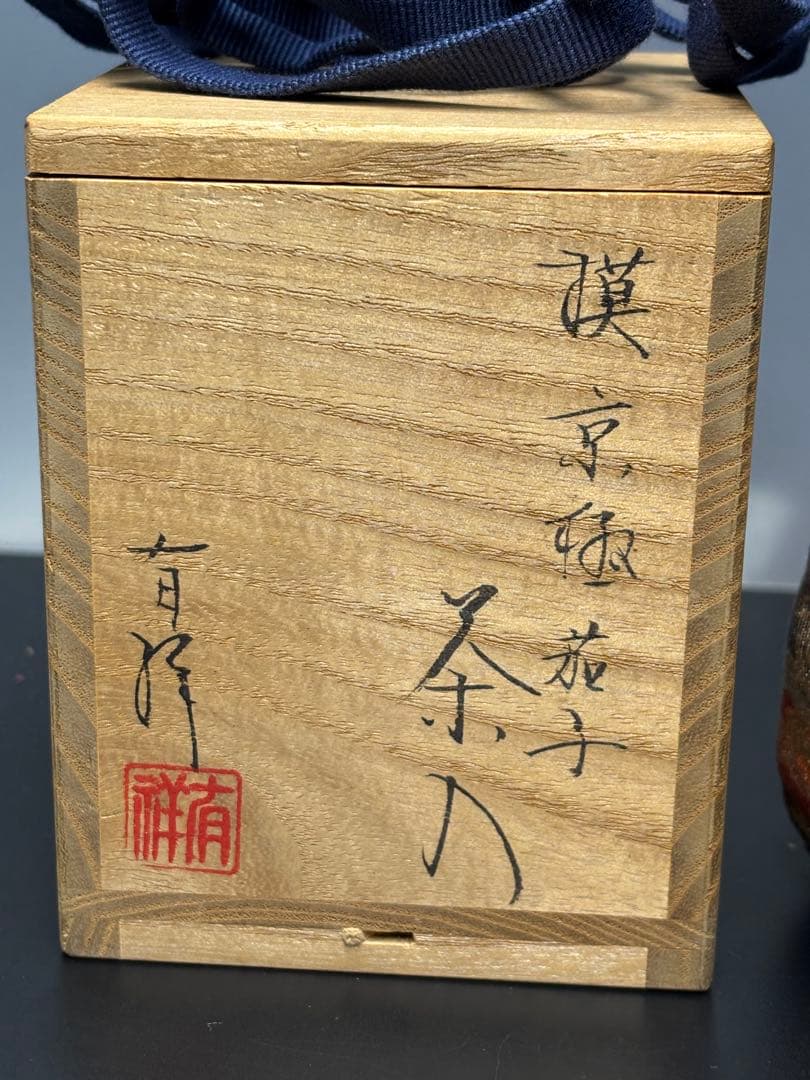 模京極茄子
茶入
有祥
有祥